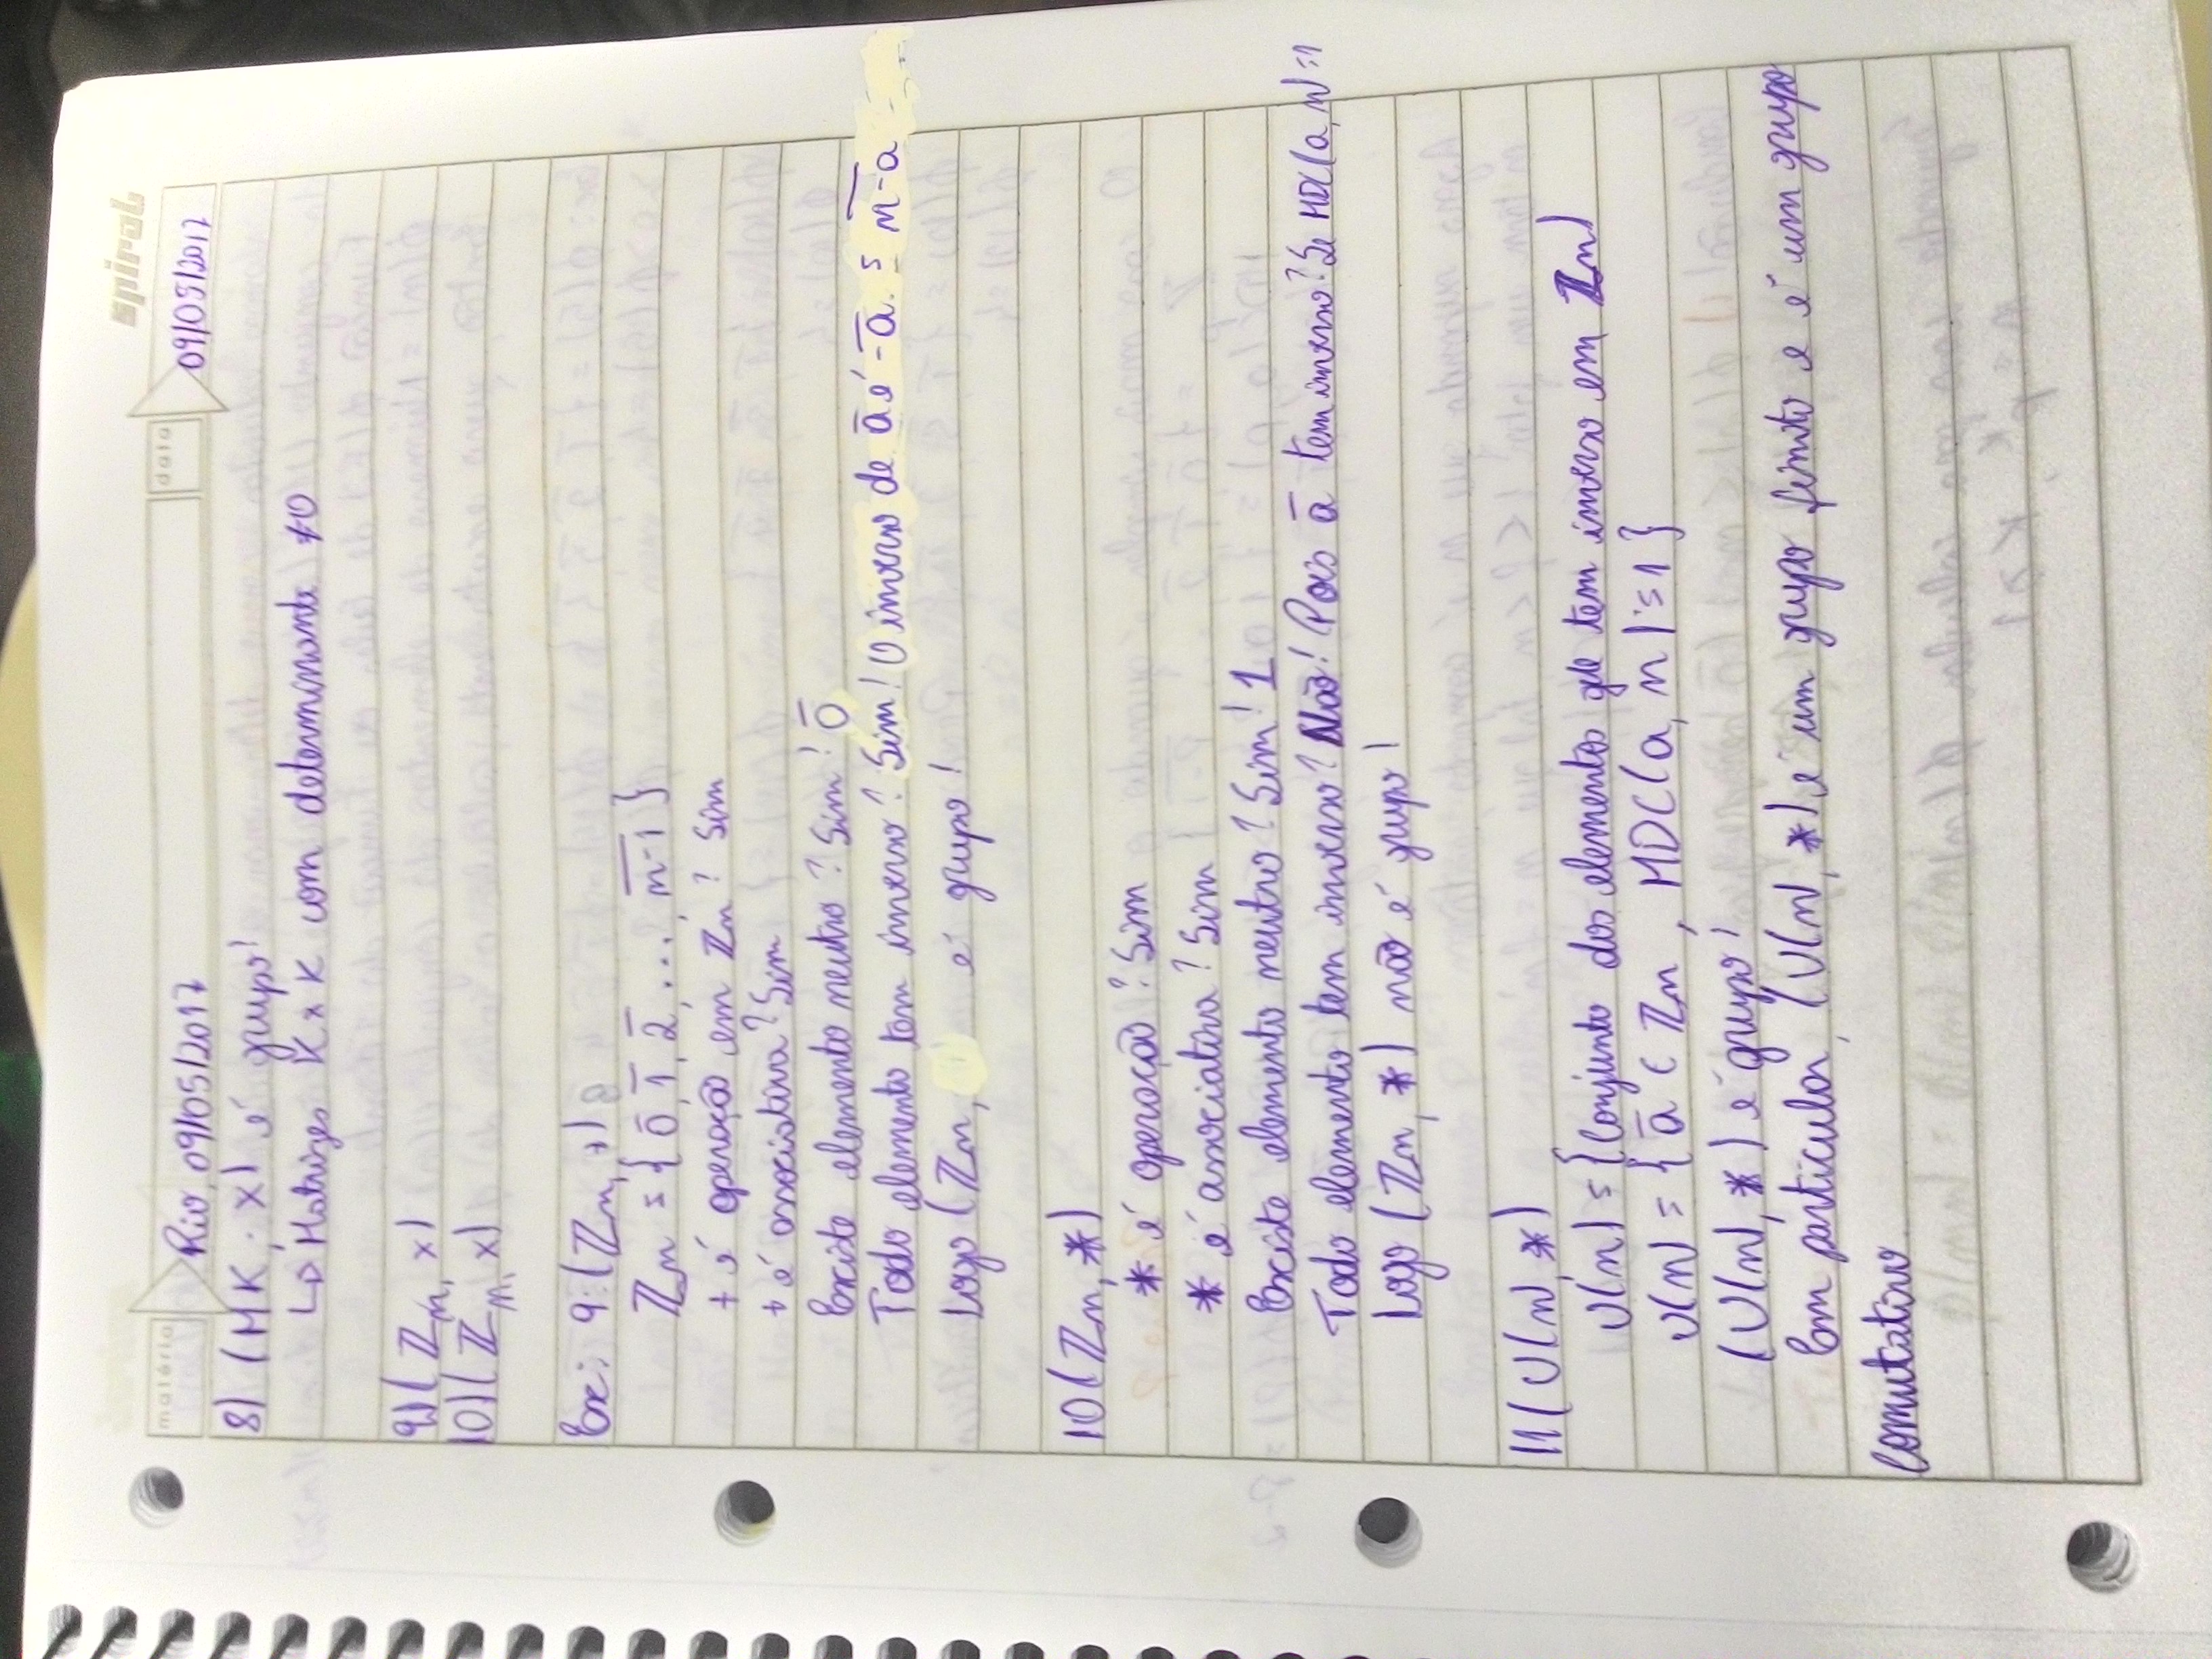 spiral
matéria Rio, 09/05/2017 data 09/05/2017
8) (MK, X) é grupo!
↳ Matrizes K x K com determinante ≠0
9) (ℤn, x)
10) (ℤn, x)
Ex: 9: (ℤn, +)
ℤn = {0̄, 1̄, 2̄, ..., n-1̅}
+ é operação em ℤn? Sim
+ é associativa? Sim
Existe elemento neutro? Sim! 0̄
Todo elemento tem inverso? Sim! O inverso de ā é -ā. = n-a̅
Logo (ℤn, é grupo!
10 (ℤn, *)
* é operação? Sim
* é associativa? Sim
Existe elemento neutro? Sim! 1
Todo elemento tem inverso? Não! Pois ā tem inverso? Se MDC(a, n) = 1
Logo (ℤn, *) não é grupo!
11 (U(n), *)
U(n) = {Conjunto dos elementos que tem inverso em ℤn)
U(n) = {ā ∈ ℤn, MDC(a, n) = 1}
(U(n), *) é grupo!
Em particular, (U(n), *) é um grupo finito e é um grupo
comutativo.